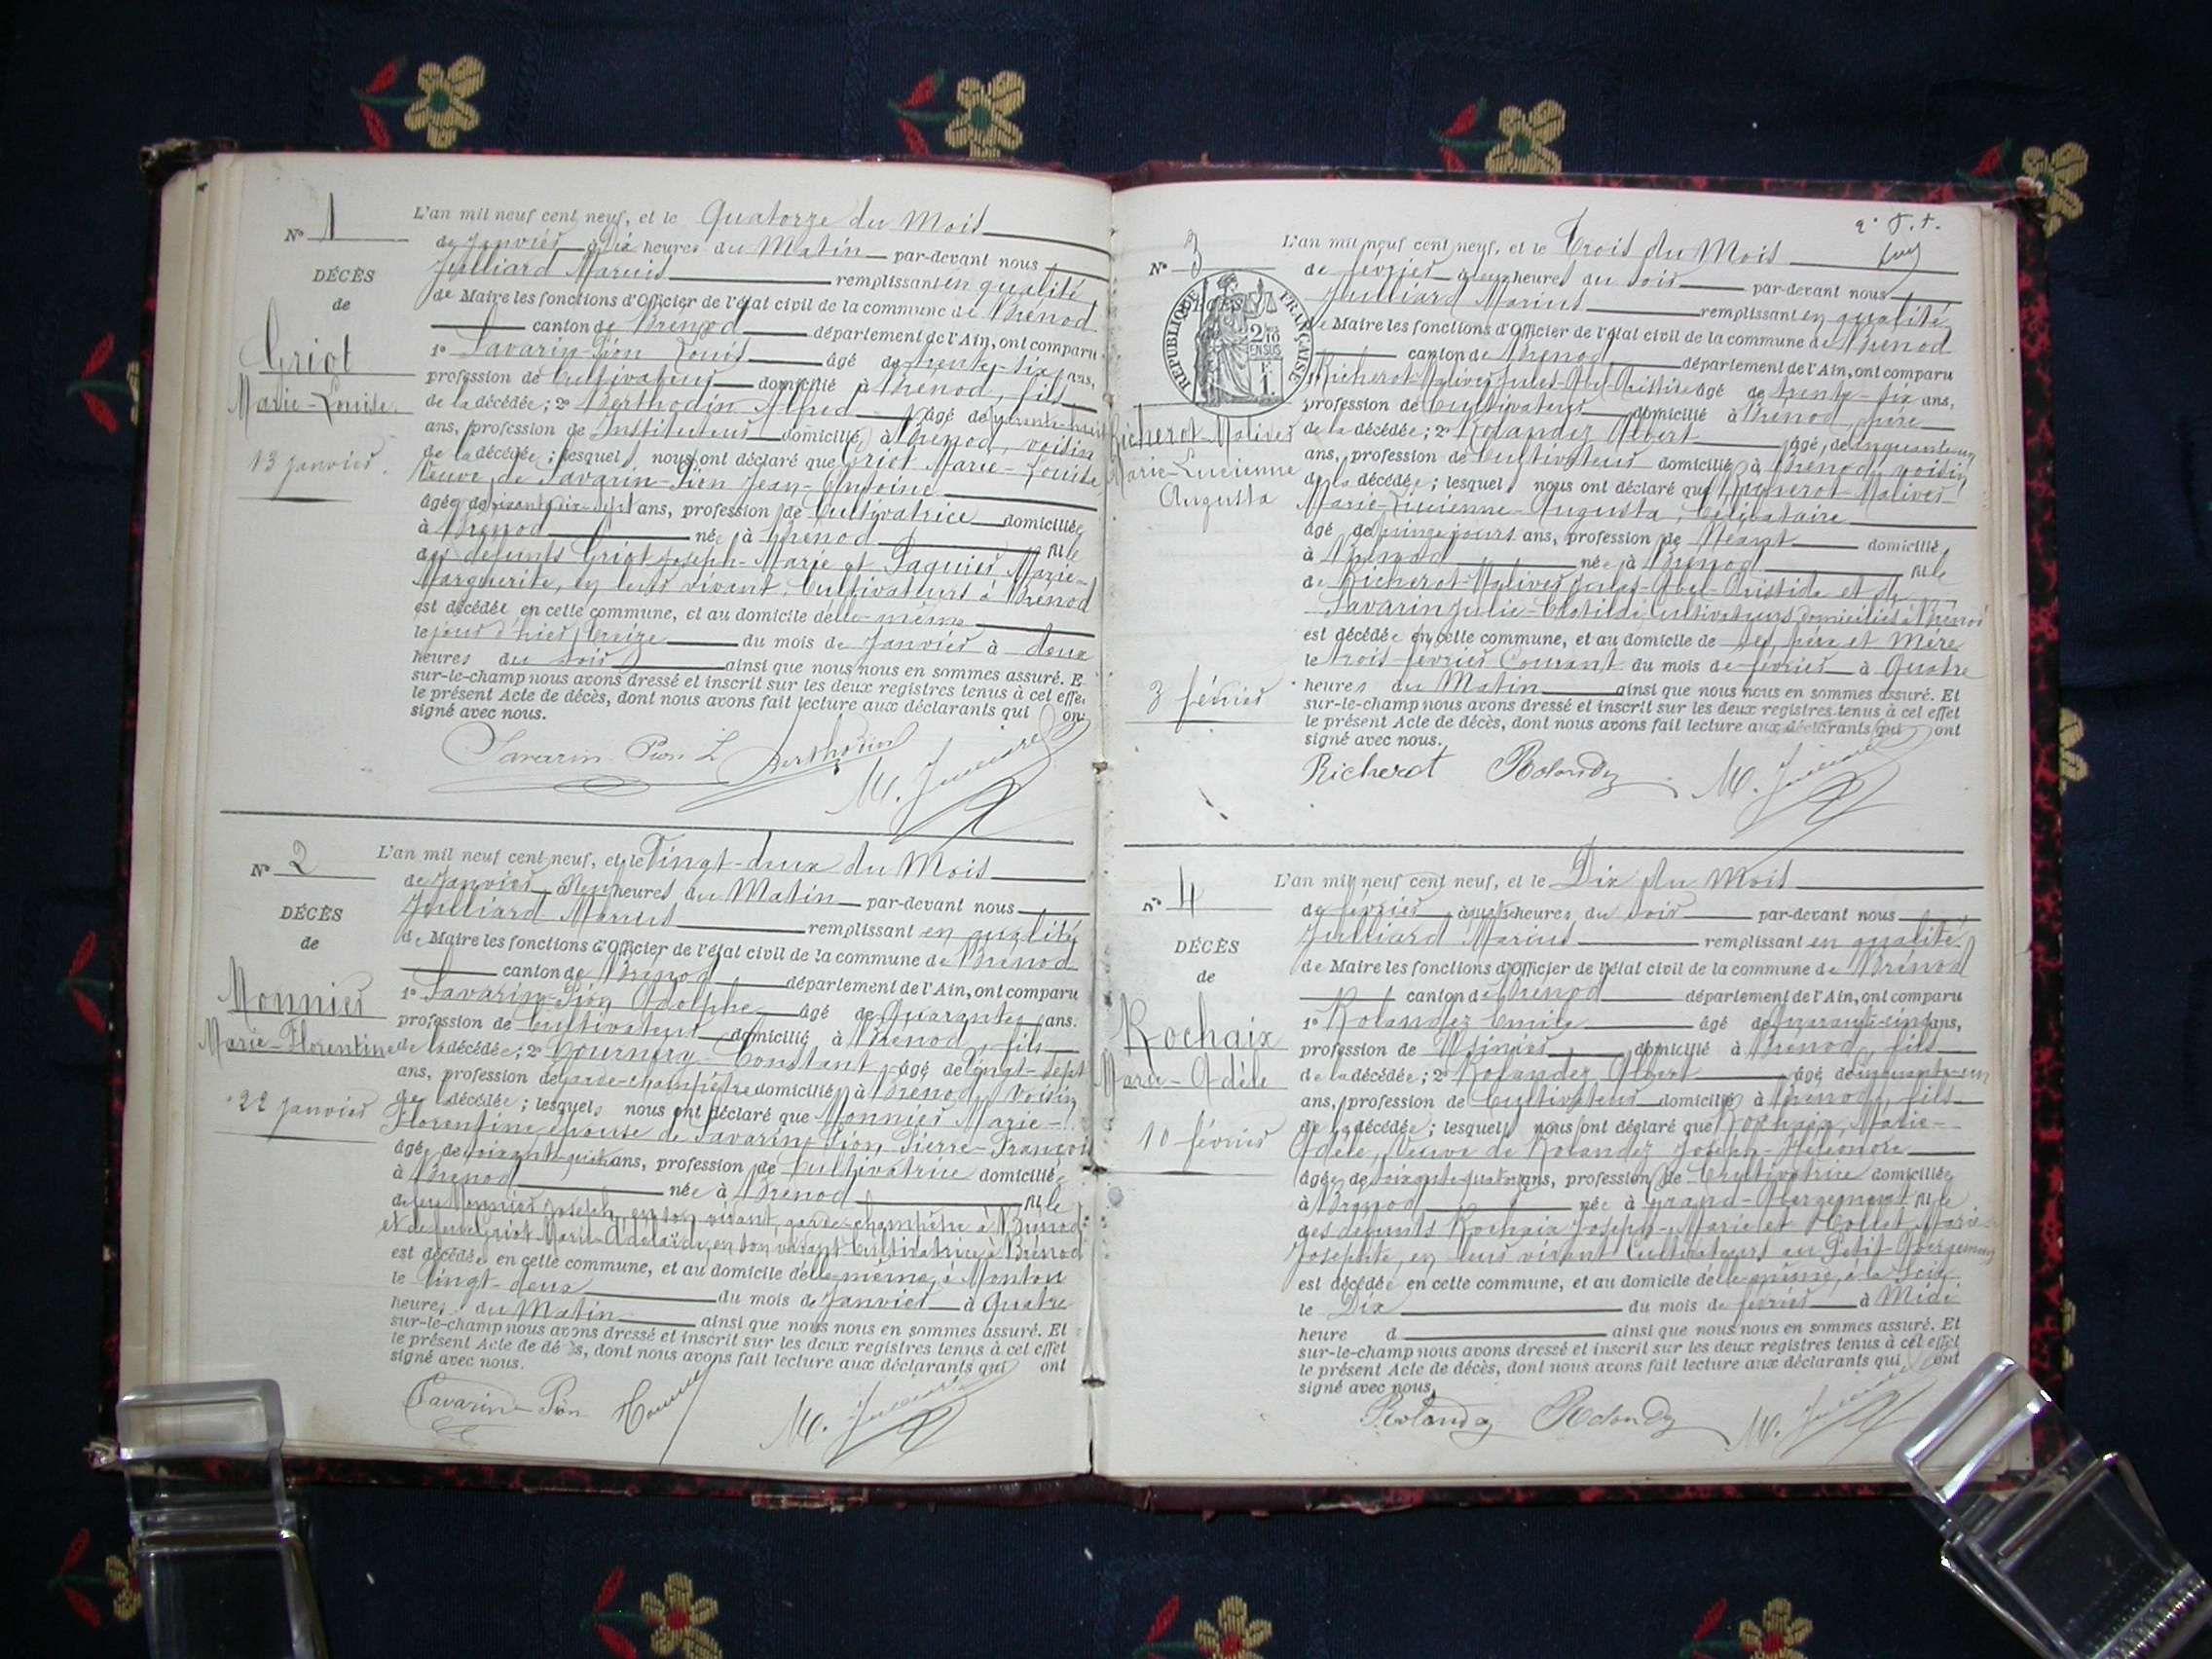 N° 1
DÉCÈS
de
Griot
Marie-Louise
13 Janvier.
L'an mil neuf cent neuf, et le Quatorze du Mois
de Janvier à Dix heures du Matin par-devant nous
Julliard Marius remplissant en qualité
de Maire les fonctions d'Officier de l'état civil de la commune de Brénod
canton de Brénod département de l'Ain, ont comparu
1° Savarin-Pion Louis âgé de trente-six ans,
profession de Cultivateur domicilié à Brénod, fils
de la décédée; 2° Berthodin Alfred âgé de quarante-huit
ans, profession de Instituteur domicilié à Brénod, voisin
de la décédée; lesquels nous ont déclaré que Griot Marie-Louise
Veuve de Savarin-Pion Jean-Antoine
âgée de soixante-dix-sept ans, profession de Cultivatrice domiciliée
à Brénod née à Brénod fille
des défunts Griot Joseph-Marie et Paquier Marie-
Marguerite, en leur vivant, Cultivateurs à Brénod
est décédée en cette commune, et au domicile d'elle-même
le jour d'hier treize du mois de Janvier à deux
heures du soir ainsi que nous nous en sommes assuré. E
sur-le-champ nous avons dressé et inscrit sur les deux registres tenus à cet effe
le présent Acte de décès, dont nous avons fait lecture aux déclarants qui on
signé avec nous.
Savarin Pion L Berthodin
M. Julliard
N° 2
DÉCÈS
de
Monnier
Marie-Florentine
22 Janvier
L'an mil neuf cent neuf, et le Vingt-deux du Mois
de Janvier à Neuf heures du Matin par-devant nous
Julliard Marius remplissant en qualité
de Maire les fonctions d'Officier de l'état civil de la commune de Brénod
canton de Brénod département de l'Ain, ont comparu
1° Savarin-Pion Adolphe âgé de Quarante ans.
profession de Cultivateur domicilié à Brénod, fils
de la décédée; 2° Constant âgé de Vingt-sept
ans, profession de garde-champêtre domicilié à Brénod, Voisin
de la décédée; lesquels nous ont déclaré que Monnier Marie-
Florentine épouse de Savarin-Pion Pierre-François
âgée de ans, profession de Cultivatrice domiciliée
à Brénod née à Brénod fille
de feu Monnier Joseph, en son vivant, garde-champêtre à Brénod
et de feue Griot Marie-Adélaïde, en son vivant Cultivatrice à Brénod
est décédée en cette commune, et au domicile d'elle-même, à
le Vingt-deux du mois de Janvier à Quatre
heures du Matin ainsi que nous nous en sommes assuré. Et
sur-le-champ nous avons dressé et inscrit sur les deux registres tenus à cet effet
le présent Acte de décès, dont nous avons fait lecture aux déclarants qui ont
signé avec nous.
Savarin Pion
M. Julliard
N° 3
RÉPUBLIQUE FRANÇAISE
2/10
EN SUS
Richerot-Malivés
Marie-Lucienne
Augusta
3 février
L'an mil neuf cent neuf, et le Trois du Mois
de février à heures du soir par-devant nous
Julliard Marius remplissant en qualité
de Maire les fonctions d'Officier de l'état civil de la commune de Brénod
canton de Brénod département de l'Ain, ont comparu
1° Richerot-Malives Jules-Abel-Aristide âgé de trente-six ans,
profession de Cultivateur domicilié à Brénod, père
de la décédée; 2° Rolandez Albert âgé de cinquante-un
ans, profession de Cultivateur domicilié à Brénod, voisin
de la décédée; lesquels nous ont déclaré que Richerot-Malives
Marie-Lucienne-Augusta, Célibataire
âgé de quinze jours ans, profession de Néant domiciliée
à Brénod née à Brénod fille
de Richerot-Malives Jules-Abel-Aristide et de
Savarin Julie-Clotilde, cultivateurs domiciliés à Brénod
est décédée en cette commune, et au domicile de ses père et mère
le trois février Courant du mois de février à Quatre
heures du Matin ainsi que nous nous en sommes assuré. Et
sur-le-champ nous avons dressé et inscrit sur les deux registres tenus à cet effet
le présent Acte de décès, dont nous avons fait lecture aux déclarants qui ont
signé avec nous.
Richerot Rolandez M. Julliard
N° 4
DÉCÈS
de
Rochaix
Marie-Adèle
10 février
L'an mil neuf cent neuf, et le Dix du Mois
de février à quatre heures du soir par-devant nous
Julliard Marius remplissant en qualité
de Maire les fonctions d'Officier de l'état civil de la commune de Brénod
canton de Brénod département de l'Ain, ont comparu
1° Rolandez Emile âgé de quarante-cinq ans,
profession de Usinier domicilié à Brénod, fils
de la décédée; 2° Rolandez Albert âgé de cinquante-un
ans, profession de Cultivateur domicilié à Brénod, fils
de la décédée; lesquels nous ont déclaré que Rochaix, Marie-
Adèle, Veuve de Rolandez Joseph-Héléonore
âgée de ans, profession de Cultivatrice domiciliée
à Brénod née à Grand-Abergement fille
des défunts Rochaix Joseph-Marie et Hollet Marie-
Josephte, en leur vivant Cultivateurs au Petit-Abergement
est décédée en cette commune, et au domicile d'elle-même, à la Scie
le Dix du mois de février à Midi
heure d ainsi que nous nous en sommes assuré. Et
sur-le-champ nous avons dressé et inscrit sur les deux registres tenus à cet effet
le présent Acte de décès, dont nous avons fait lecture aux déclarants qui ont
signé avec nous.
Rolandez Rolandez M. Julliard